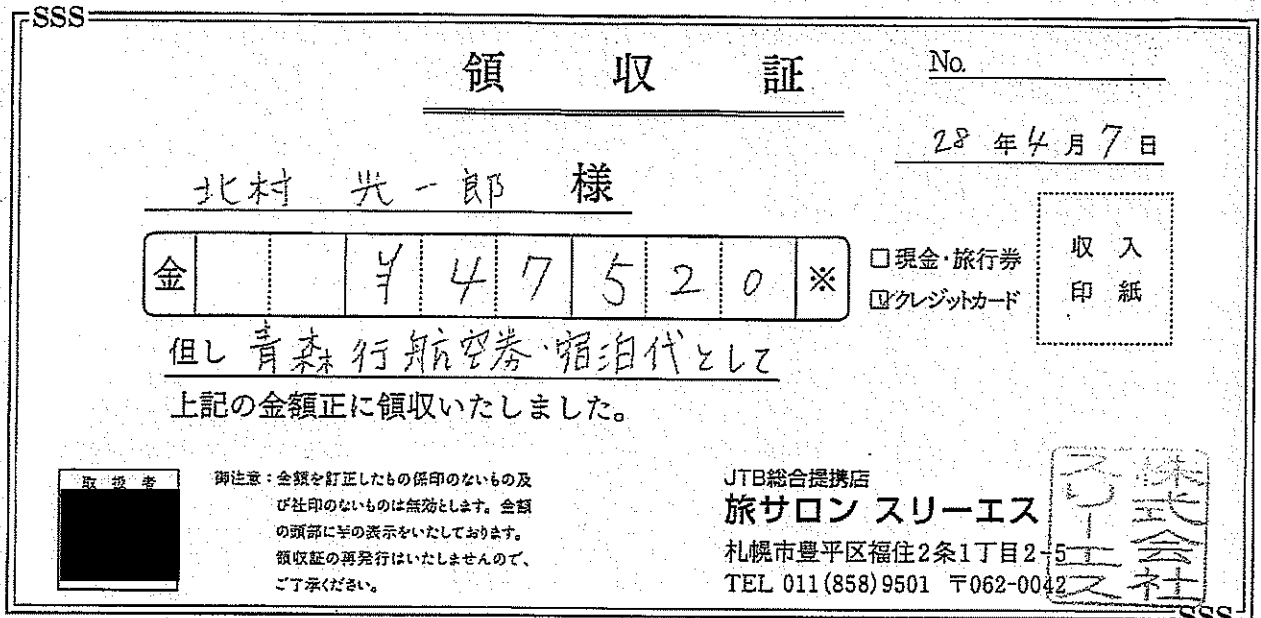 SSS
領収証
No.
28年4月7日
北村 光一郎 様
金 ¥47520※
□現金・旅行券
☑クレジットカード
収入
印紙
但し 青森行航空券・宿泊代として
上記の金額正に領収いたしました。
取扱者
御注意:金額を訂正したもの係印のないもの及
び社印のないものは無効とします。金額
の頭部に¥の表示をいたしております。
領収証の再発行はいたしませんので、
ご了承ください。
JTB総合提携店
旅サロン スリーエス
札幌市豊平区福住2条1丁目2-5
TEL 011(858)9501 〒062-0042
株式会社
スリーエス
SSS